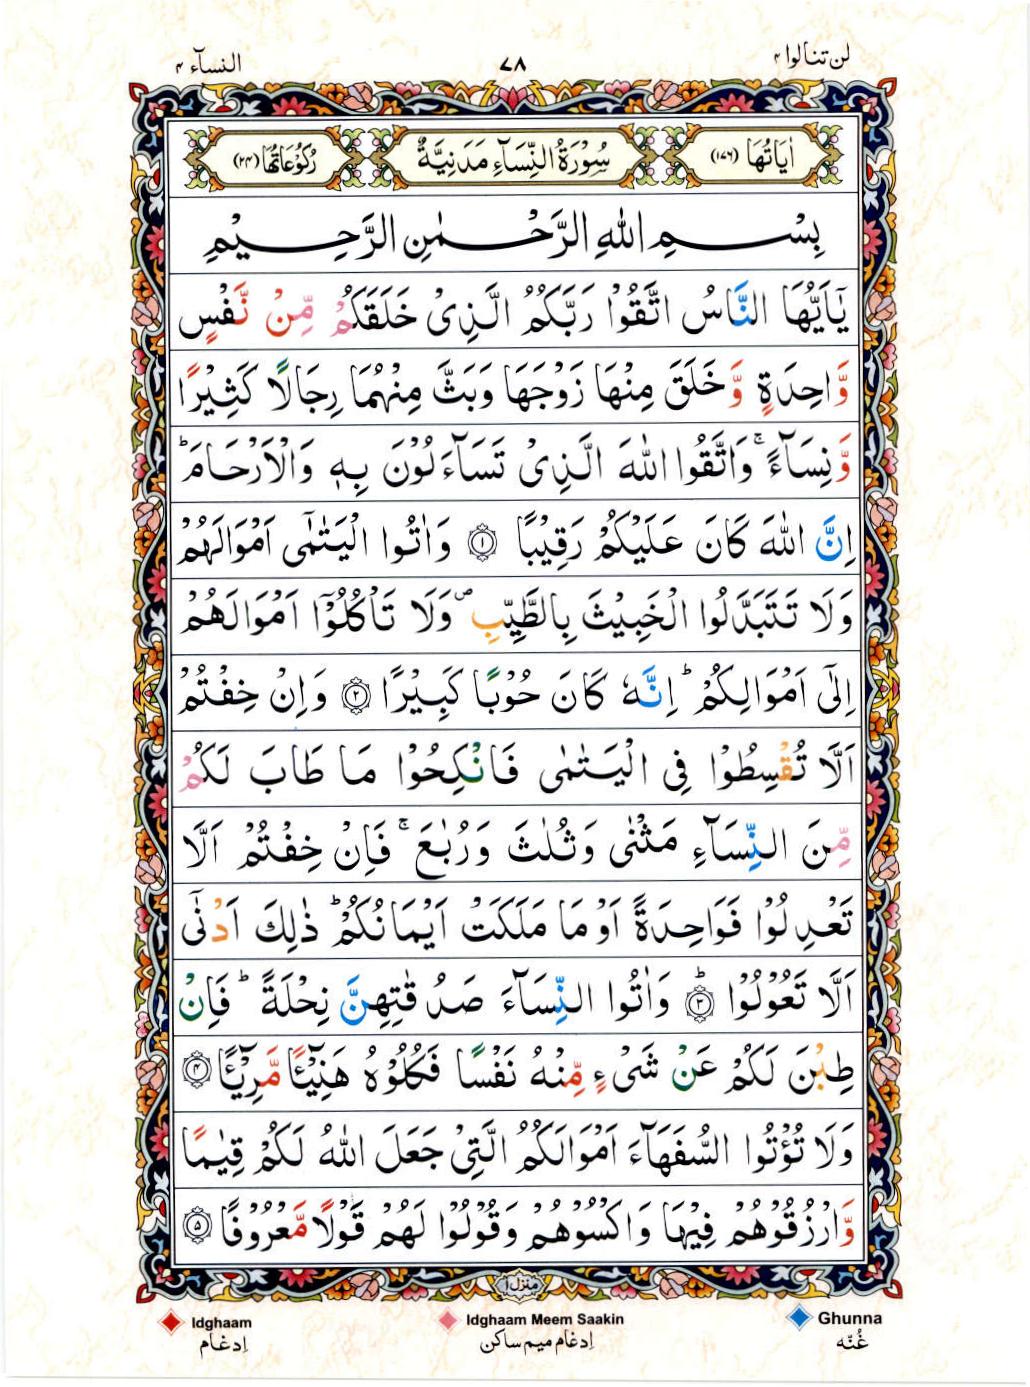 لن تنالوا ۴
۷۸
النسآء ۴
اٰيَاتُهَا (۱۷۶)
سُوْرَةُ النِّسَآءِ مَدَنِيَّةٌ
رُكُوْعَاتُهَا (۲۴)
بِسْمِ اللّٰهِ الرَّحْمٰنِ الرَّحِيْمِ
يٰٓاَيُّهَا النَّاسُ اتَّقُوْا رَبَّكُمُ الَّذِىْ خَلَقَكُمْ مِّنْ نَّفْسٍ
وَّاحِدَةٍ وَّخَلَقَ مِنْهَا زَوْجَهَا وَبَثَّ مِنْهُمَا رِجَالًا كَثِيْرًا
وَّنِسَآءً ۚ وَاتَّقُوا اللّٰهَ الَّذِىْ تَسَآءَلُوْنَ بِهٖ وَالْاَرْحَامَ ؕ
اِنَّ اللّٰهَ كَانَ عَلَيْكُمْ رَقِيْبًا ۱ وَاٰتُوا الْيَتٰمٰٓى اَمْوَالَهُمْ
وَلَا تَتَبَدَّلُوا الْخَبِيْثَ بِالطَّيِّبِ ص وَلَا تَاْكُلُوْٓا اَمْوَالَهُمْ
اِلٰٓى اَمْوَالِكُمْ ؕ اِنَّهٗ كَانَ حُوْبًا كَبِيْرًا ۲ وَاِنْ خِفْتُمْ
اَلَّا تُقْسِطُوْا فِى الْيَتٰمٰى فَانْكِحُوْا مَا طَابَ لَكُمْ
مِّنَ النِّسَآءِ مَثْنٰى وَثُلٰثَ وَرُبٰعَ ۚ فَاِنْ خِفْتُمْ اَلَّا
تَعْدِلُوْا فَوَاحِدَةً اَوْ مَا مَلَكَتْ اَيْمَانُكُمْ ؕ ذٰلِكَ اَدْنٰٓى
اَلَّا تَعُوْلُوْا ؕ ۳ وَاٰتُوا النِّسَآءَ صَدُقٰتِهِنَّ نِحْلَةً ؕ فَاِنْ
طِبْنَ لَكُمْ عَنْ شَىْءٍ مِّنْهُ نَفْسًا فَكُلُوْهُ هَنِيْٓـًٔا مَّرِيْٓـًٔا ۴
وَلَا تُؤْتُوا السُّفَهَآءَ اَمْوَالَكُمُ الَّتِىْ جَعَلَ اللّٰهُ لَكُمْ قِيٰمًا
وَّارْزُقُوْهُمْ فِيْهَا وَاكْسُوْهُمْ وَقُوْلُوْا لَهُمْ قَوْلًا مَّعْرُوْفًا ۵
منزل ۱
Idghaam
اِدغام
Idghaam Meem Saakin
اِدغام میم ساکن
Ghunna
غُنّه